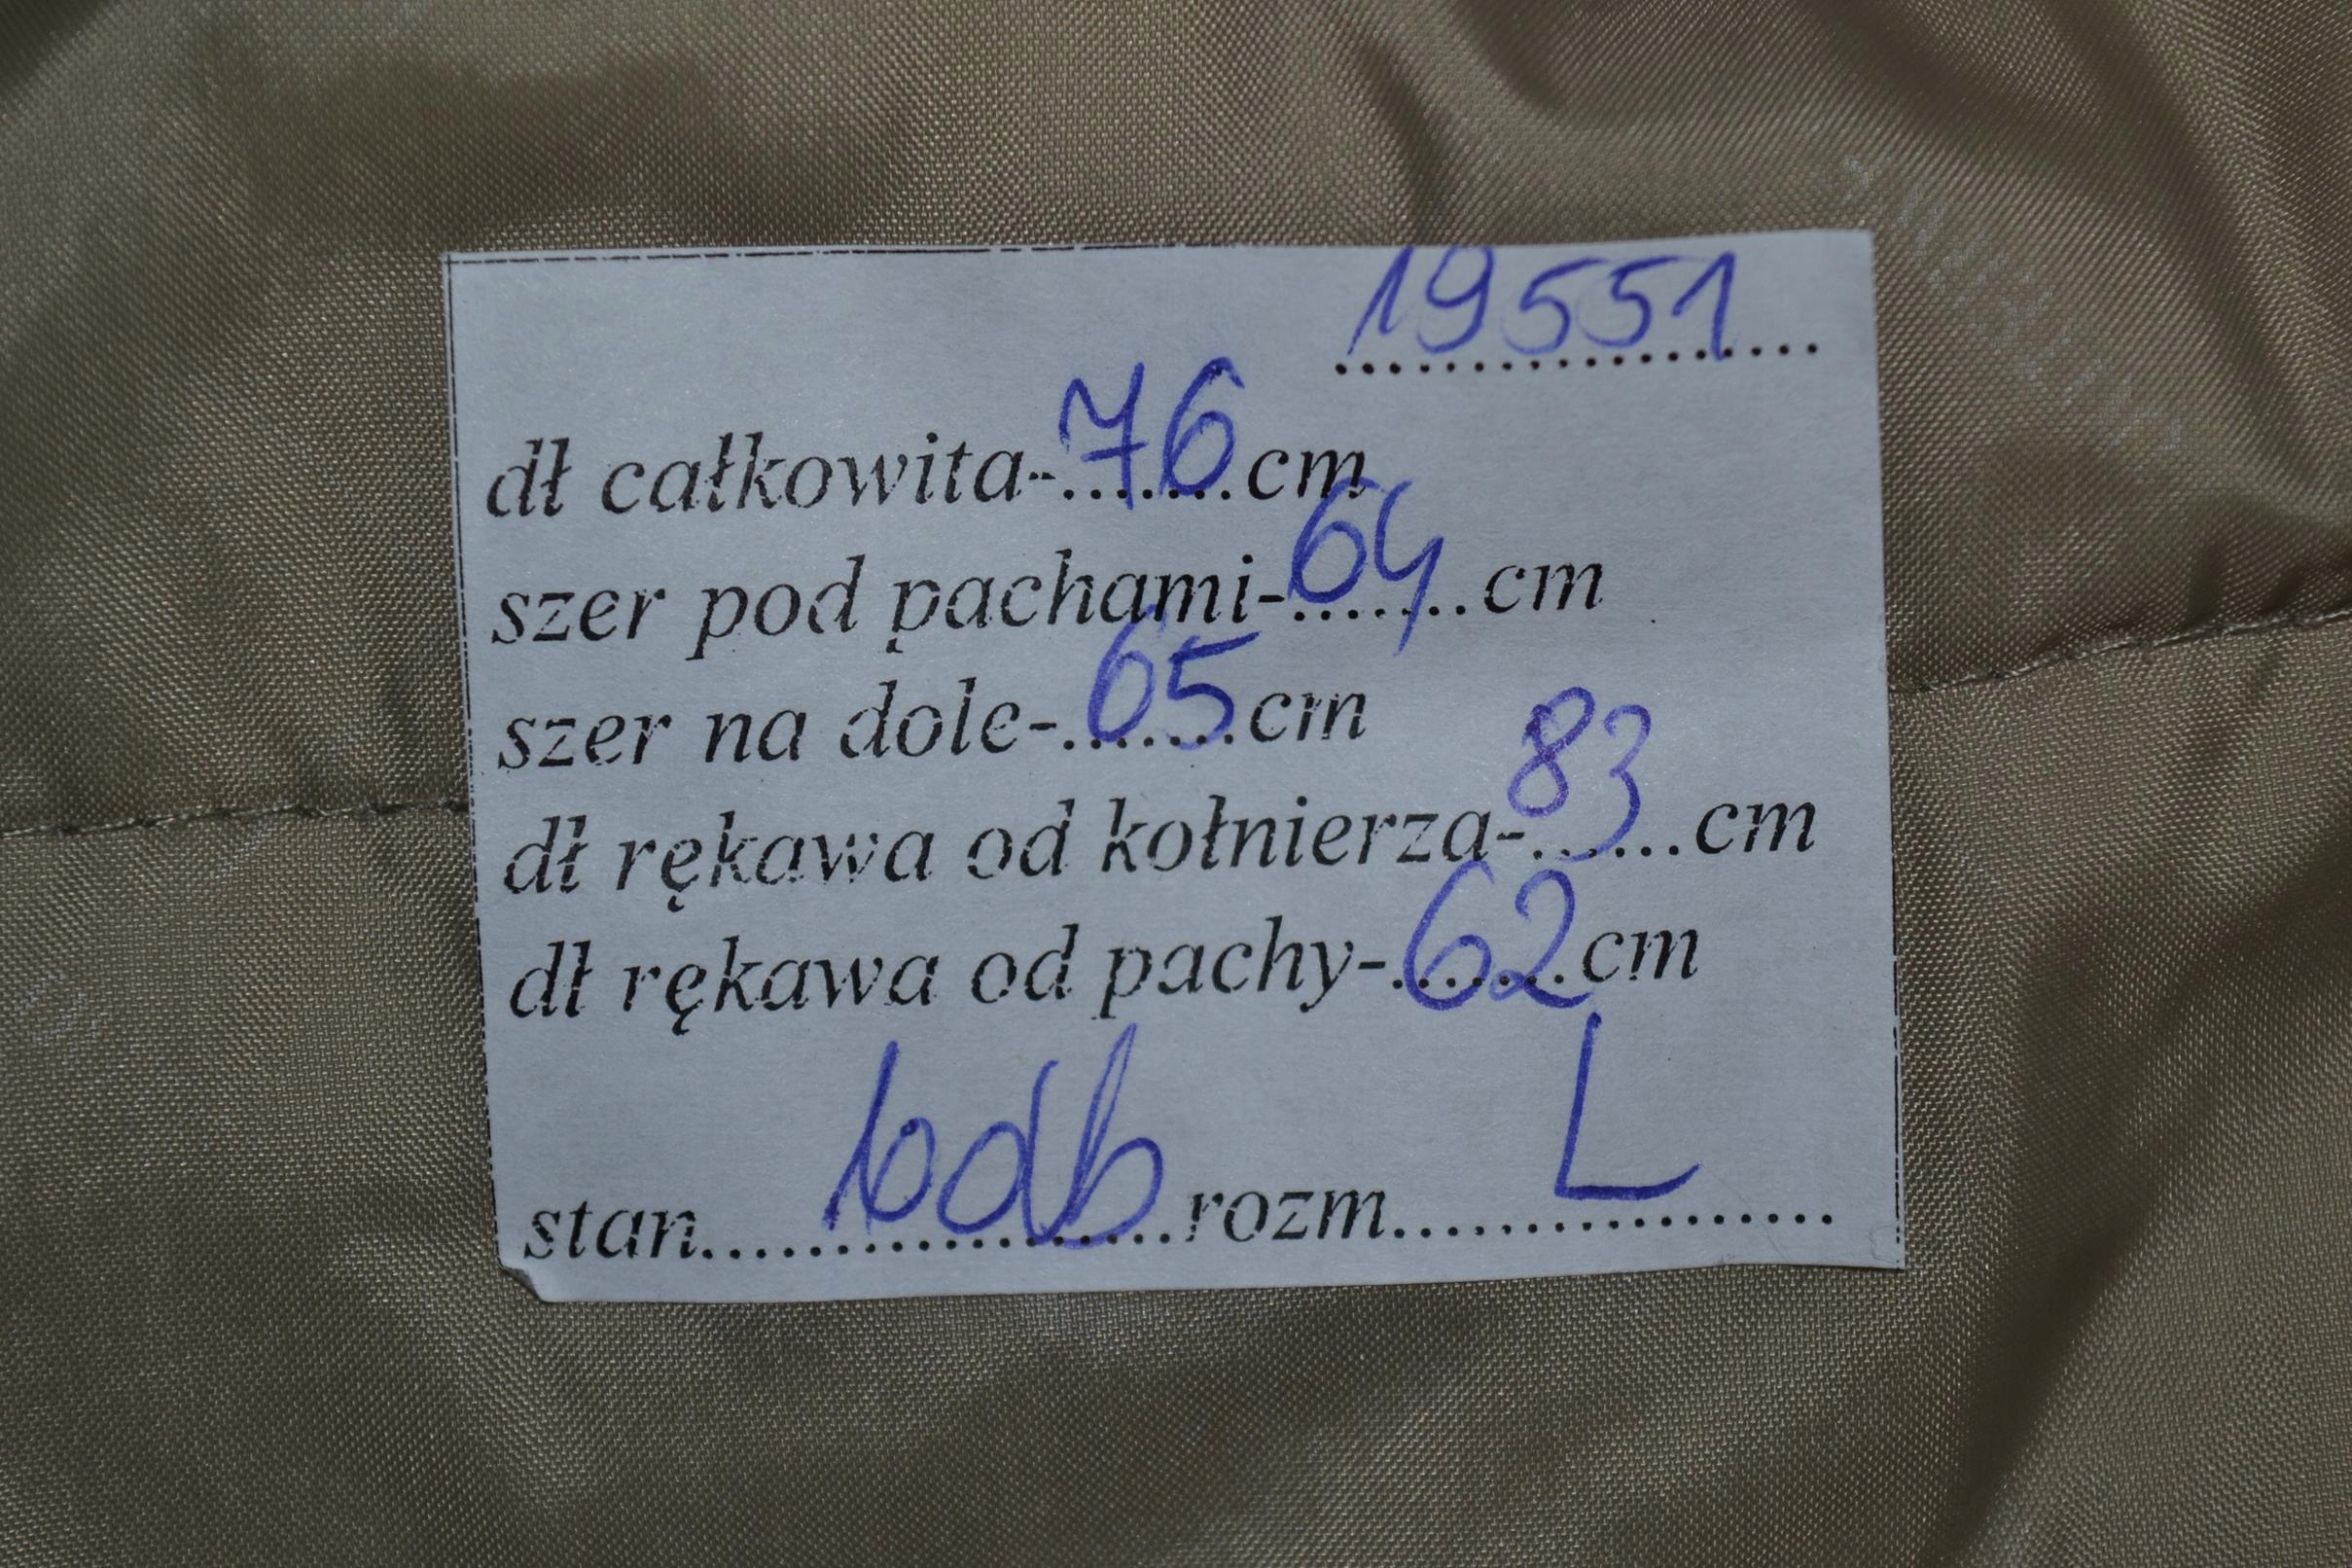 19551
dł całkowita-.......76 cm
szer pod pachami-.......64 cm
szer na dole-.......65 cm
dł rękawa od kołnierza-......83 cm
dł rękawa od pachy-.......62 cm
stan..................bdb rozm.................L